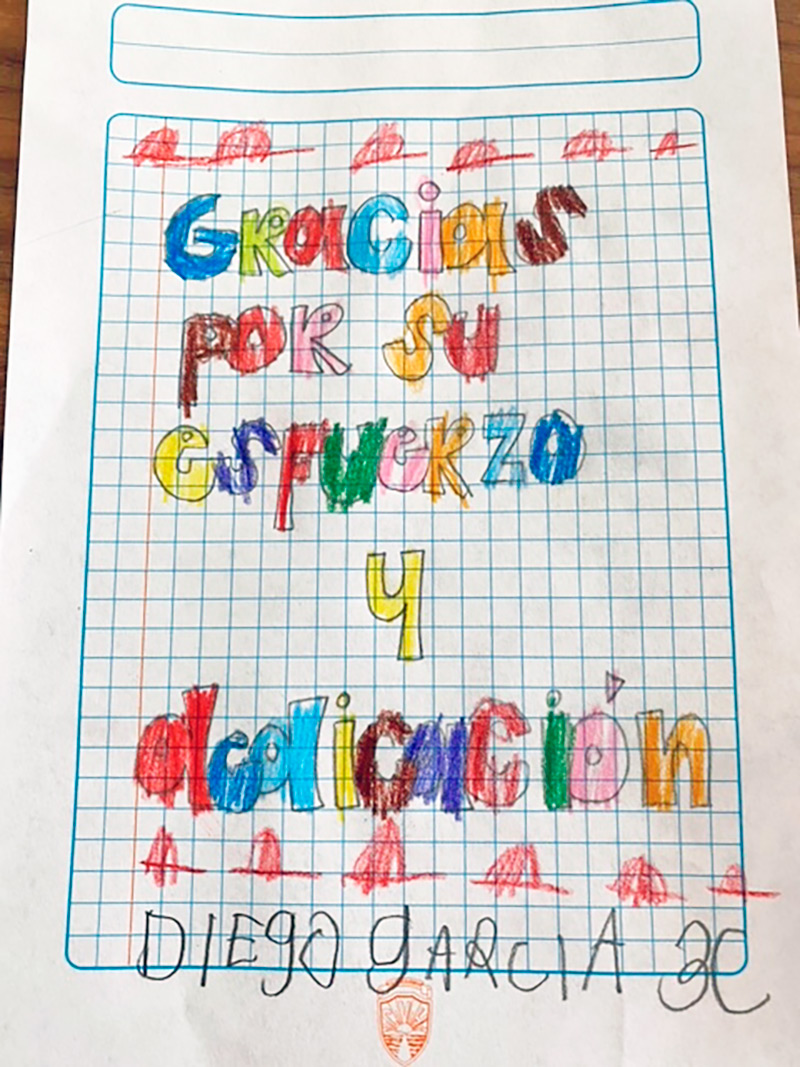 Gracias
por su
esfuerzo
y
dedicación
DIEGO GARCIA 3C